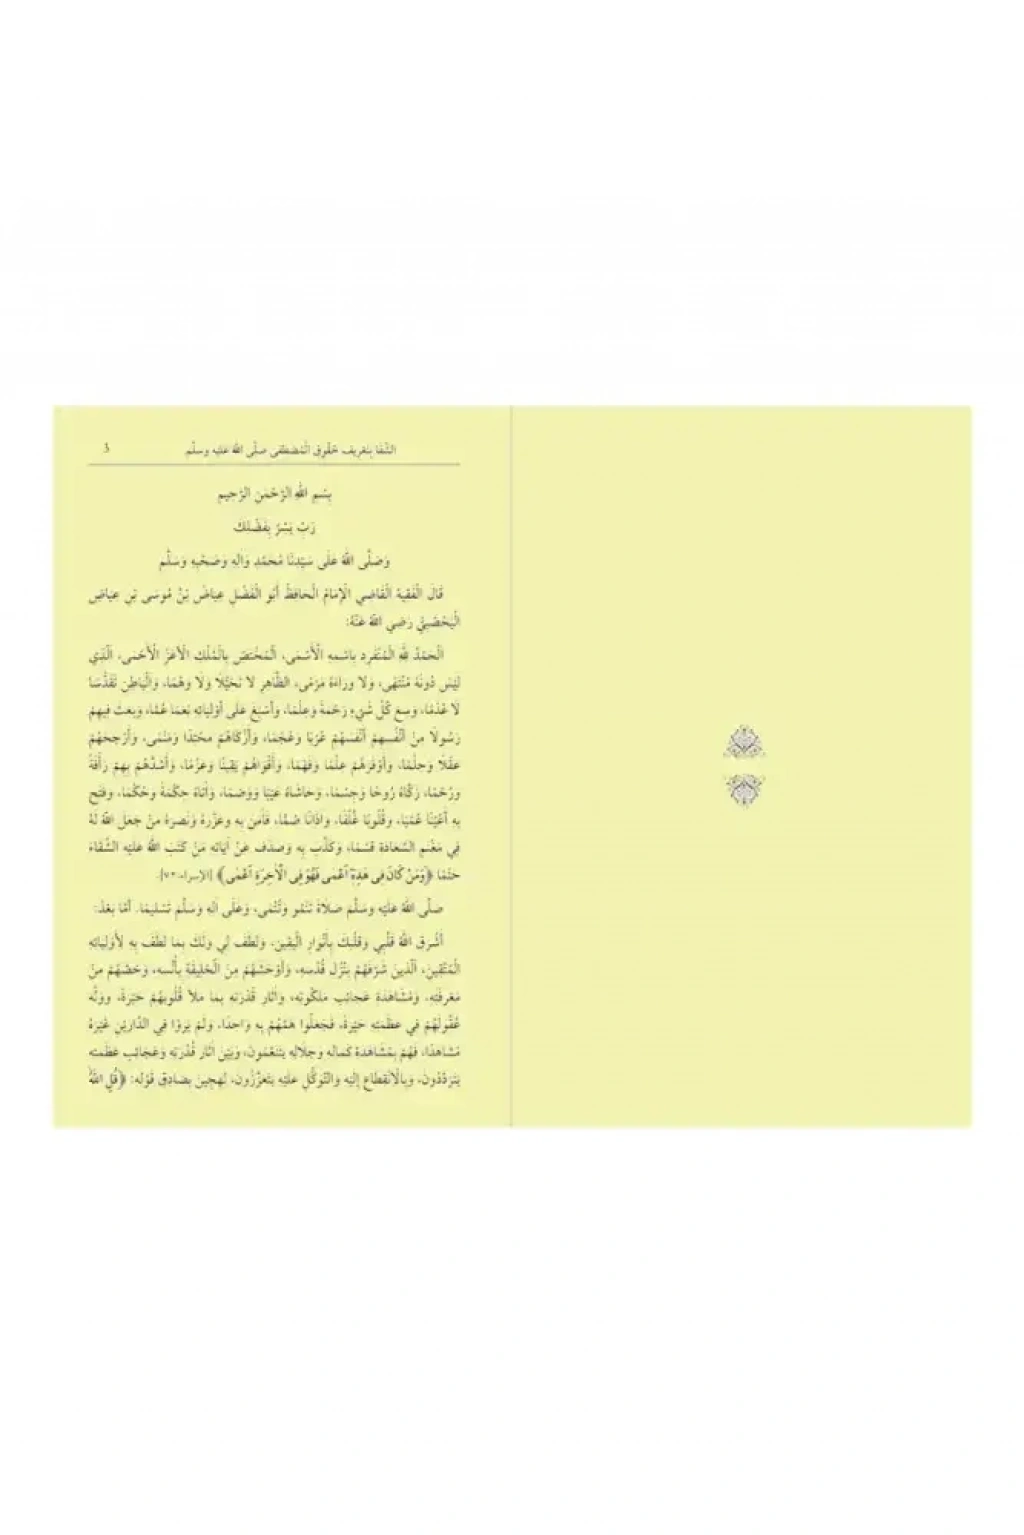 الشِّفَا بِتَعْرِيف حُقُوق الْمُصْطَفَى صلَّى اللهُ عَليْه وسلَّم 3
بِسْمِ اللهِ الرَّحْمَنِ الرَّحِيمِ
رَبِّ يَسِّرْ بِفَضْلِكَ
وَصَلَّى اللهُ عَلَى سَيِّدِنَا مُحَمَّدٍ وَآلِهِ وَصَحْبِهِ وَسَلَّم
قَالَ الْفَقِيهُ الْقَاضِي الْإِمَامُ الْحَافِظُ أَبُو الْفَضْلِ عِيَاضُ بْنُ مُوسَى بْنِ عِيَاضٍ
الْيَحْصَبِيُّ رَضِيَ اللهُ عَنْهُ:
الْحَمْدُ لِلَّهِ الْمُتَفَرِّدِ بِاسْمِهِ الْأَسْمَى، الْمُخْتَصِّ بِالْمُلْكِ الْأَعَزِّ الْأَحْمَى، الَّذِي
لَيْسَ دُونَهُ مُنْتَهًى، وَلَا وَرَاءَهُ مَرْمًى، الظَّاهِرِ لَا تَخَيُّلًا وَلَا وَهْمًا، وَالْبَاطِنِ تَقَدُّسًا
لَا عُدْمًا، وَسِعَ كُلَّ شَيْءٍ رَحْمَةً وَعِلْمًا، وَأَسْبَغَ عَلَى أَوْلِيَائِهِ نِعَمًا عُمًّا، وَبَعَثَ فِيهِمْ
رَسُولًا مِنْ أَنْفُسِهِمْ أَنْفَسَهُمْ عُرْبًا وَعُجْمًا، وَأَزْكَاهُمْ مَحْتِدًا وَمَنْمًى، وَأَرْجَحَهُمْ
عَقْلًا وَحِلْمًا، وَأَوْفَرَهُمْ عِلْمًا وَفَهْمًا، وَأَقْوَاهُمْ يَقِينًا وَعَزْمًا، وَأَشَدَّهُمْ بِهِمْ رَأْفَةً
وَرُحْمًا، زَكَّاهُ رُوحًا وَجِسْمًا، وَحَاشَاهُ عَيْبًا وَوَصْمًا، وَآتَاهُ حِكْمَةً وَحُكْمًا، وَفَتَحَ
بِهِ أَعْيُنًا عُمْيًا، وَقُلُوبًا غُلْفًا، وَآذَانًا صُمًّا، فَآمَنَ بِهِ وَعَزَّرَهُ وَنَصَرَهُ مَنْ جَعَلَ اللهُ لَهُ
فِي مَغْنَمِ السَّعَادَةِ قِسْمًا، وَكَذَّبَ بِهِ وَصَدَفَ عَنْ آيَاتِهِ مَنْ كَتَبَ اللهُ عَلَيْهِ الشَّقَاءَ
حَتْمًا ﴿وَمَنْ كَانَ فِى هَذِهِٓ أَعْمَى فَهُوَ فِى الْأَخِرَةِ أَعْمَى﴾ [الإسراء:٧٢].
صَلَّى اللهُ عَلَيْهِ وَسَلَّمَ صَلَاةً تَنْمُو وَتُنْمَى، وَعَلَى آلِهِ وَسَلَّمَ تَسْلِيمًا. أَمَّا بَعْدُ:
أَشْرَقَ اللهُ قَلْبِي وَقَلْبَكَ بِأَنْوَارِ الْيَقِينِ، وَلَطَفَ لِي وَلَكَ بِمَا لَطَفَ بِهِ لِأَوْلِيَائِهِ
الْمُتَّقِينَ، الَّذِينَ شَرَّفَهُمْ بِنُزُلِ قُدْسِهِ، وَأَوْحَشَهُمْ مِنَ الْخَلِيقَةِ بِأُنْسِهِ، وَخَصَّهُمْ مِنْ
مَعْرِفَتِهِ، وَمُشَاهَدَةِ عَجَائِبِ مَلَكُوتِهِ، وَآثَارِ قُدْرَتِهِ بِمَا مَلَأَ قُلُوبَهُمْ حَبْرَةً، وَوَلَّهَ
عُقُولَهُمْ فِي عَظَمَتِهِ حَيْرَةً، فَجَعَلُوا هَمَّهُمْ بِهِ وَاحِدًا، وَلَمْ يَرَوْا فِي الدَّارَيْنِ غَيْرَهُ
مُشَاهَدًا، فَهُمْ بِمُشَاهَدَةِ كَمَالِهِ وَجَلَالِهِ يَتَنَعَّمُونَ، وَبَيْنَ آثَارِ قُدْرَتِهِ وَعَجَائِبِ عَظَمَتِهِ
يَتَرَدَّدُونَ، وَبِالْاِنْقِطَاعِ إِلَيْهِ وَالتَّوَكُّلِ عَلَيْهِ يَتَعَزَّزُونَ، لَهِجِينَ بِصَادِقِ قَوْلِهِ: ﴿قُلِ اللهُ